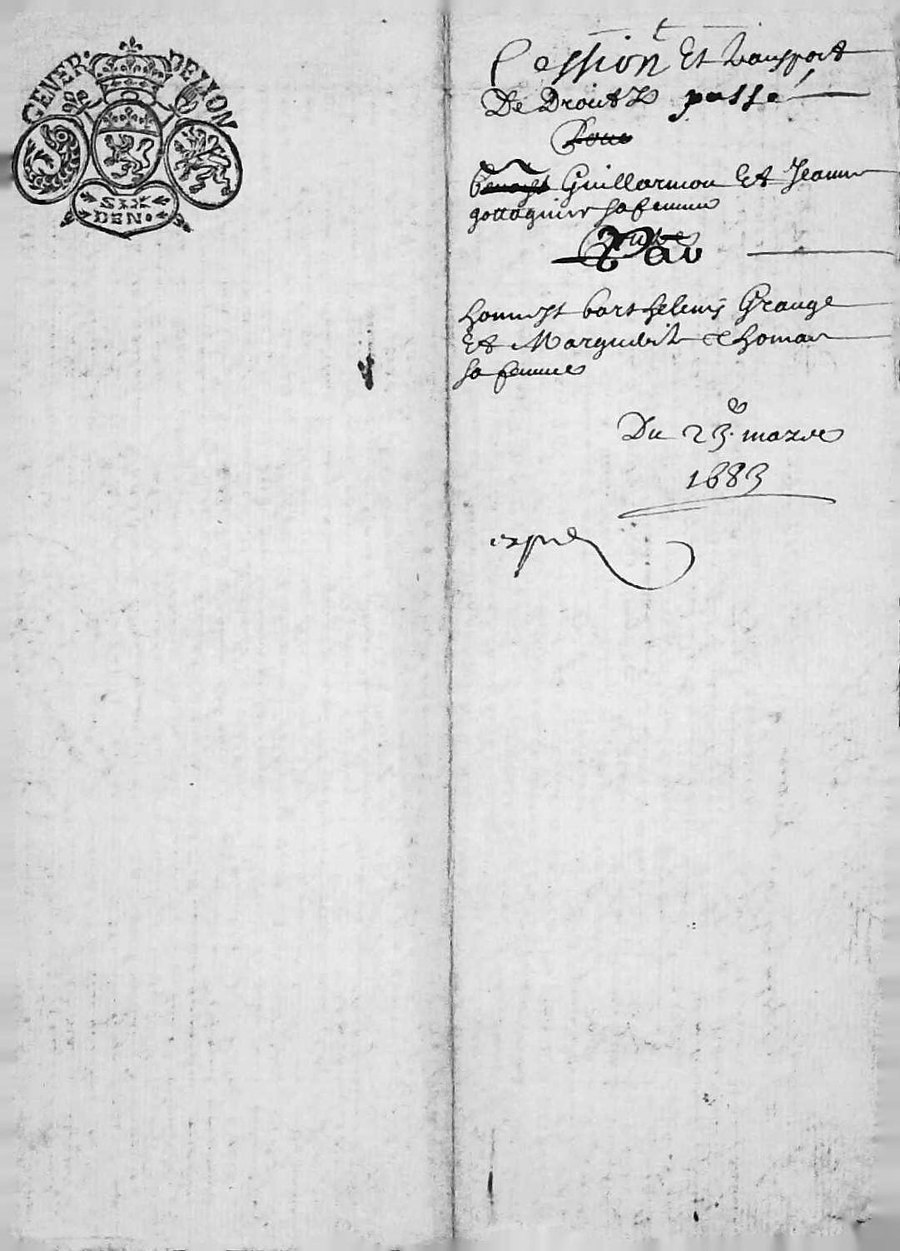 GENER. DELYON
SIX
DEN.
Cession Et transport
De Droictz passé
Pour
benoist Guillarmou Et Jeanne
gottagnier sa femme
Par
honneste barthelemy Grange
Et Marguerite Thomas
sa femme
Du 23e mars
1683
expé